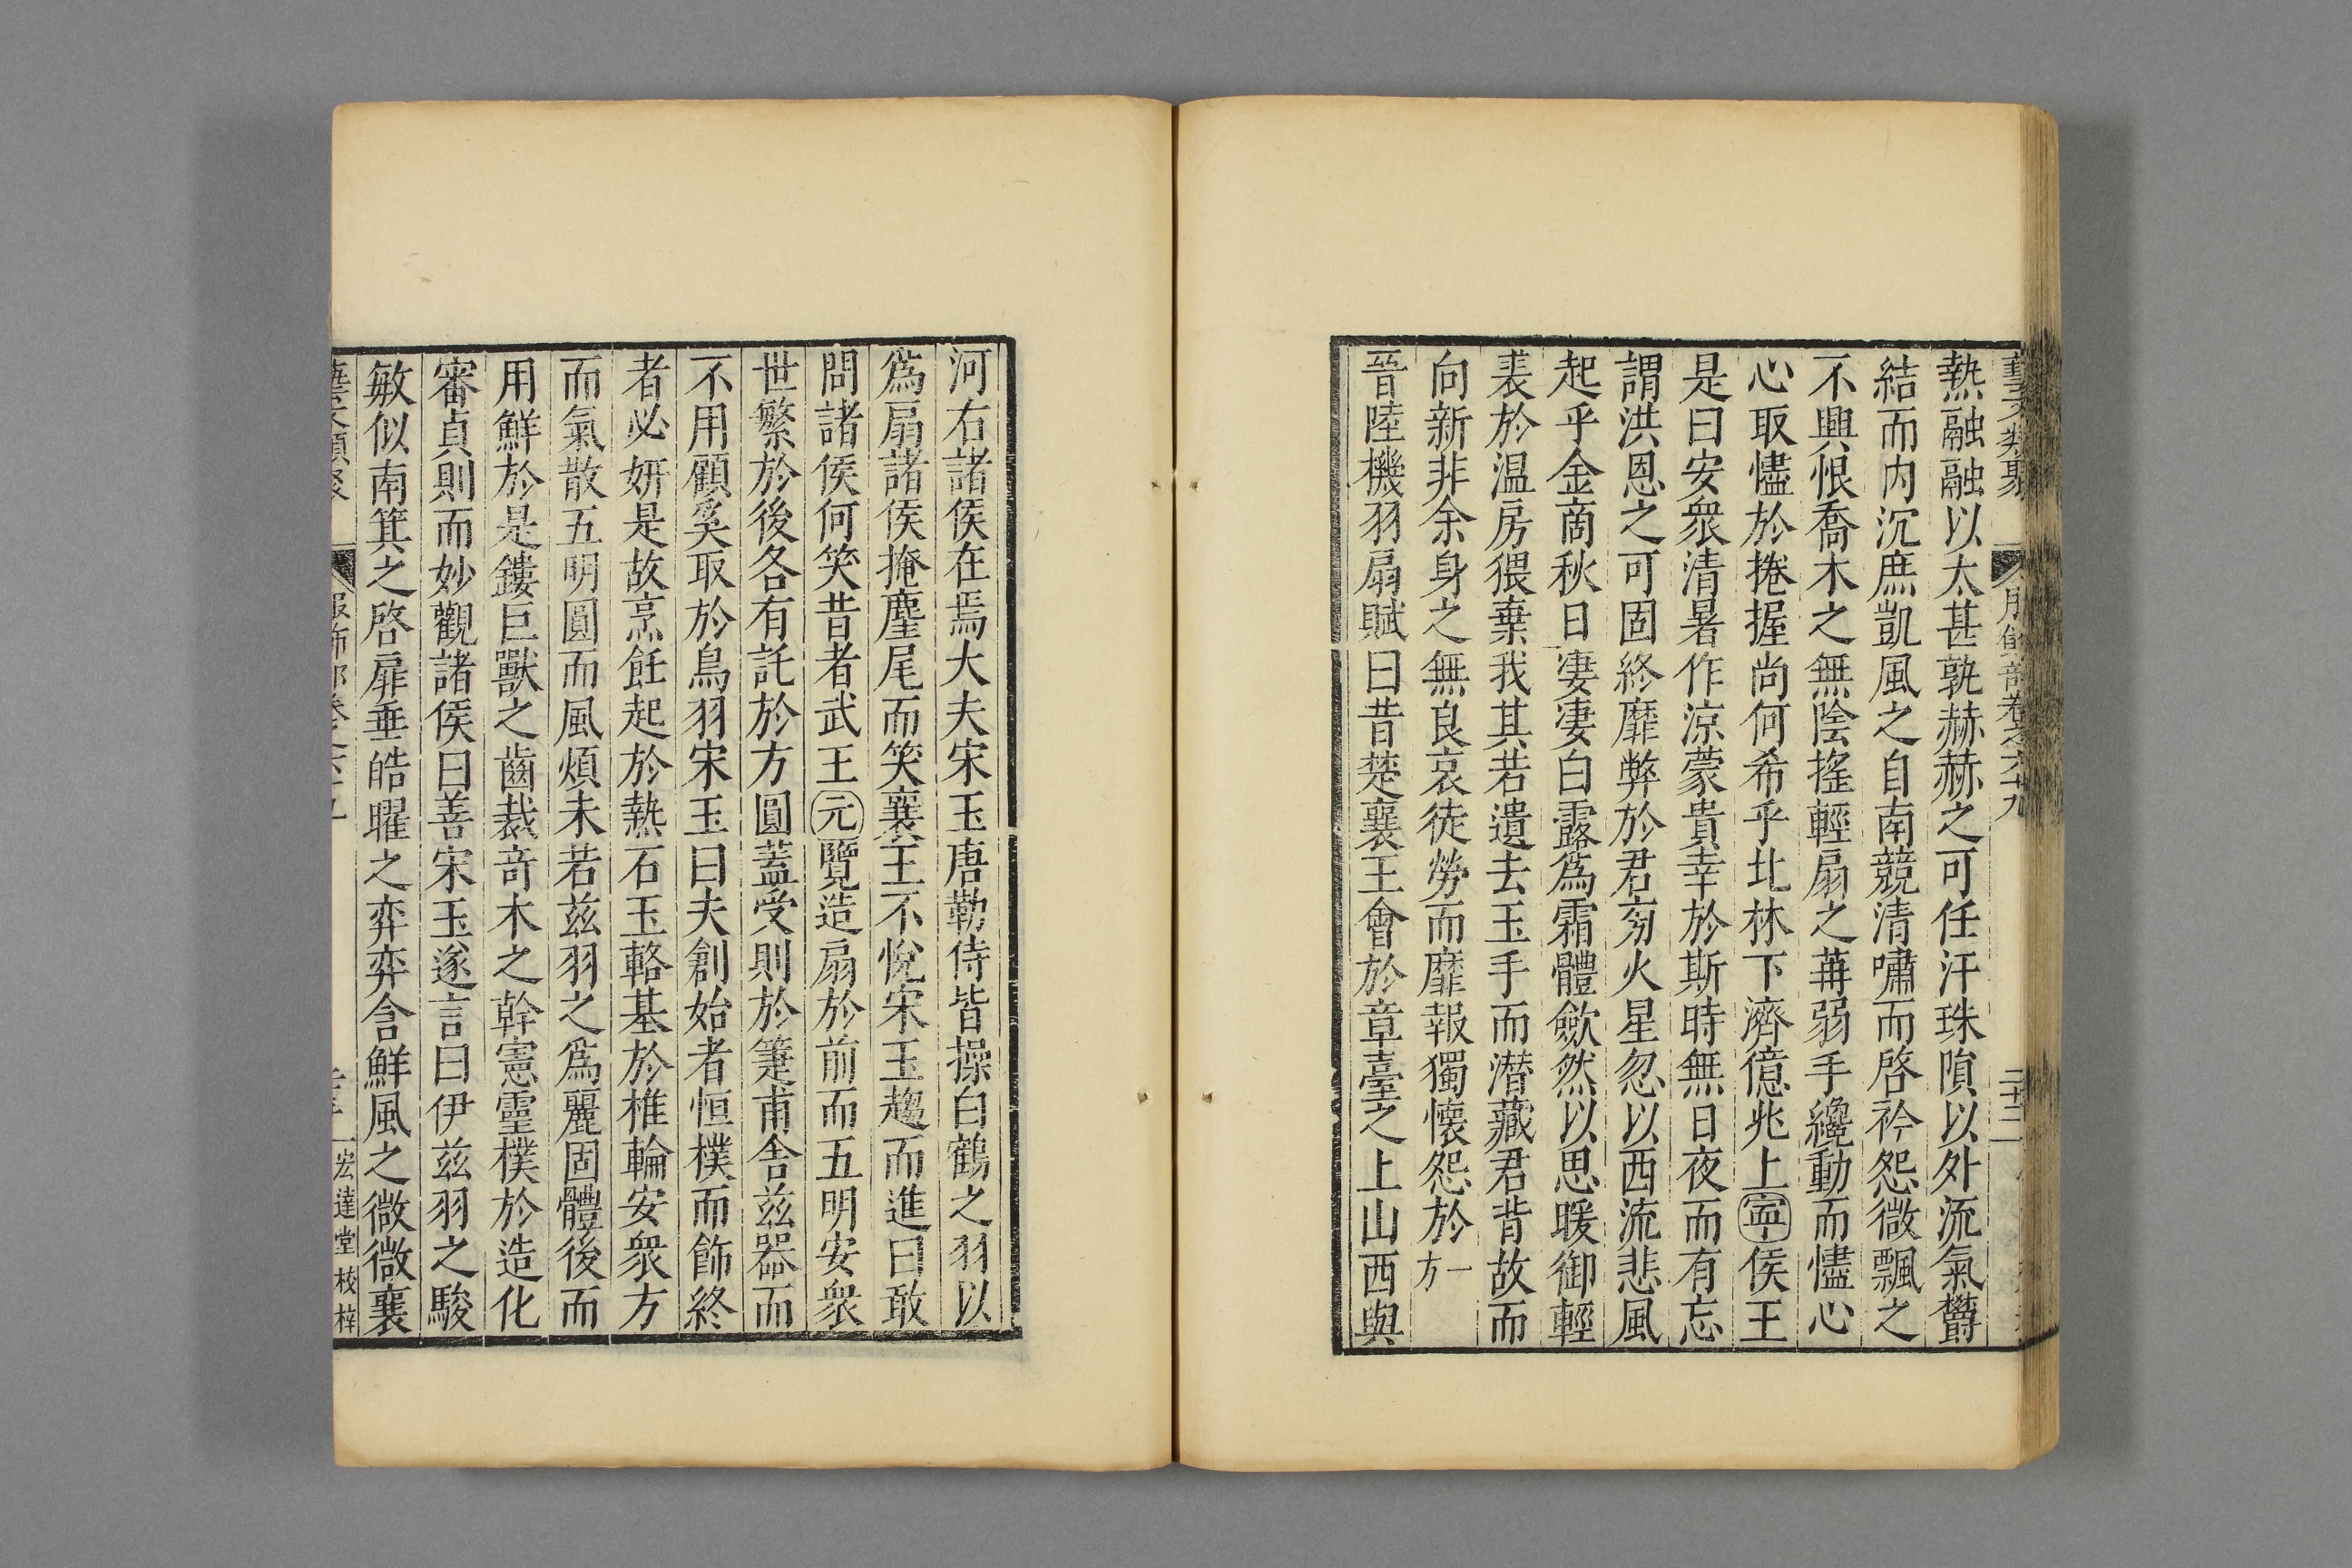 藝文類聚 服飾部卷之六十九 二十二
熱融融以太甚孰赫赫之可任汗珠隕以外流氣欝
結而内沉庶凱風之自南競清嘯而啓衿怨微飄之
不興恨喬木之無陰搖輕扇之苒弱手纔動而儘心
心取儘於捲握尚何希乎北林下濟億兆上寧侯王
是曰安衆清暑作涼蒙貴幸於斯時無日夜而有忘
謂洪恩之可固終靡弊於君旁火星忽以西流悲風
起乎金商秋日凄凄白露爲霜體歛然以思暖御輕
裘於温房猥棄我其若遺去玉手而潜藏君背故而
向新非余身之無良哀徒勞而靡報獨懷怨於一方
晉陸機羽扇賦曰昔楚襄王會於章臺之上山西與
河右諸侯在焉大夫宋玉唐勒侍皆操白鶴之羽以
爲扇諸侯掩麈尾而笑襄王不悅宋玉趨而進曰敢
問諸侯何笑昔者武王元覽造扇於前而五明安衆
世繁於後各有託於方圓蓋受則於箑甫舍兹器而
不用顧奚取於鳥羽宋玉曰夫創始者恒樸而飾終
者必妍是故烹飪起於熱石玉輅基於椎輪安衆方
而氣散五明圓而風煩未若兹羽之爲麗固體後而
用鮮於是鏤巨獸之齒裁奇木之幹憲靈樸於造化
審貞則而妙觀諸侯曰善宋玉遂言曰伊兹羽之駿
敏似南箕之啓扉垂皓曜之弈弈含鮮風之微微襄
宏達堂校梓